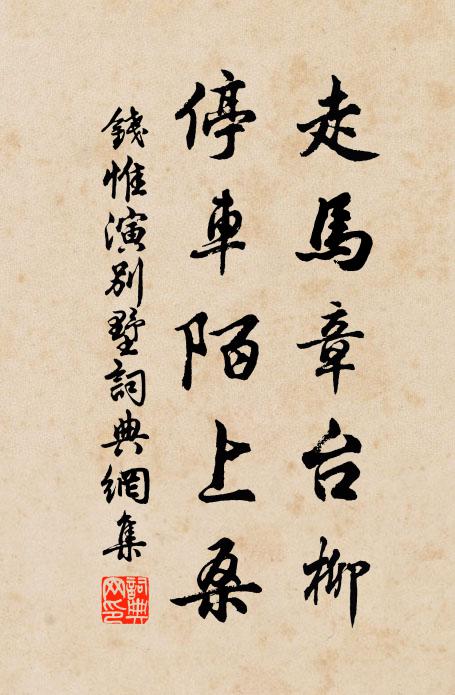 走馬章台柳
停車陌上桑
錢惟演別墅詞典網集
詞典网印